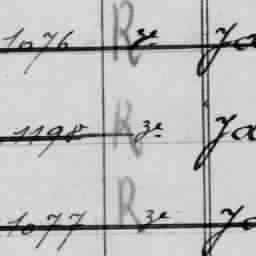 1076 R 3e Ja
1198 R 3e Ja
1077 R 3e Ja